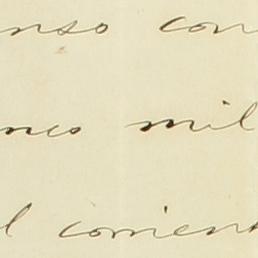 nso con
nco mil
l corrient